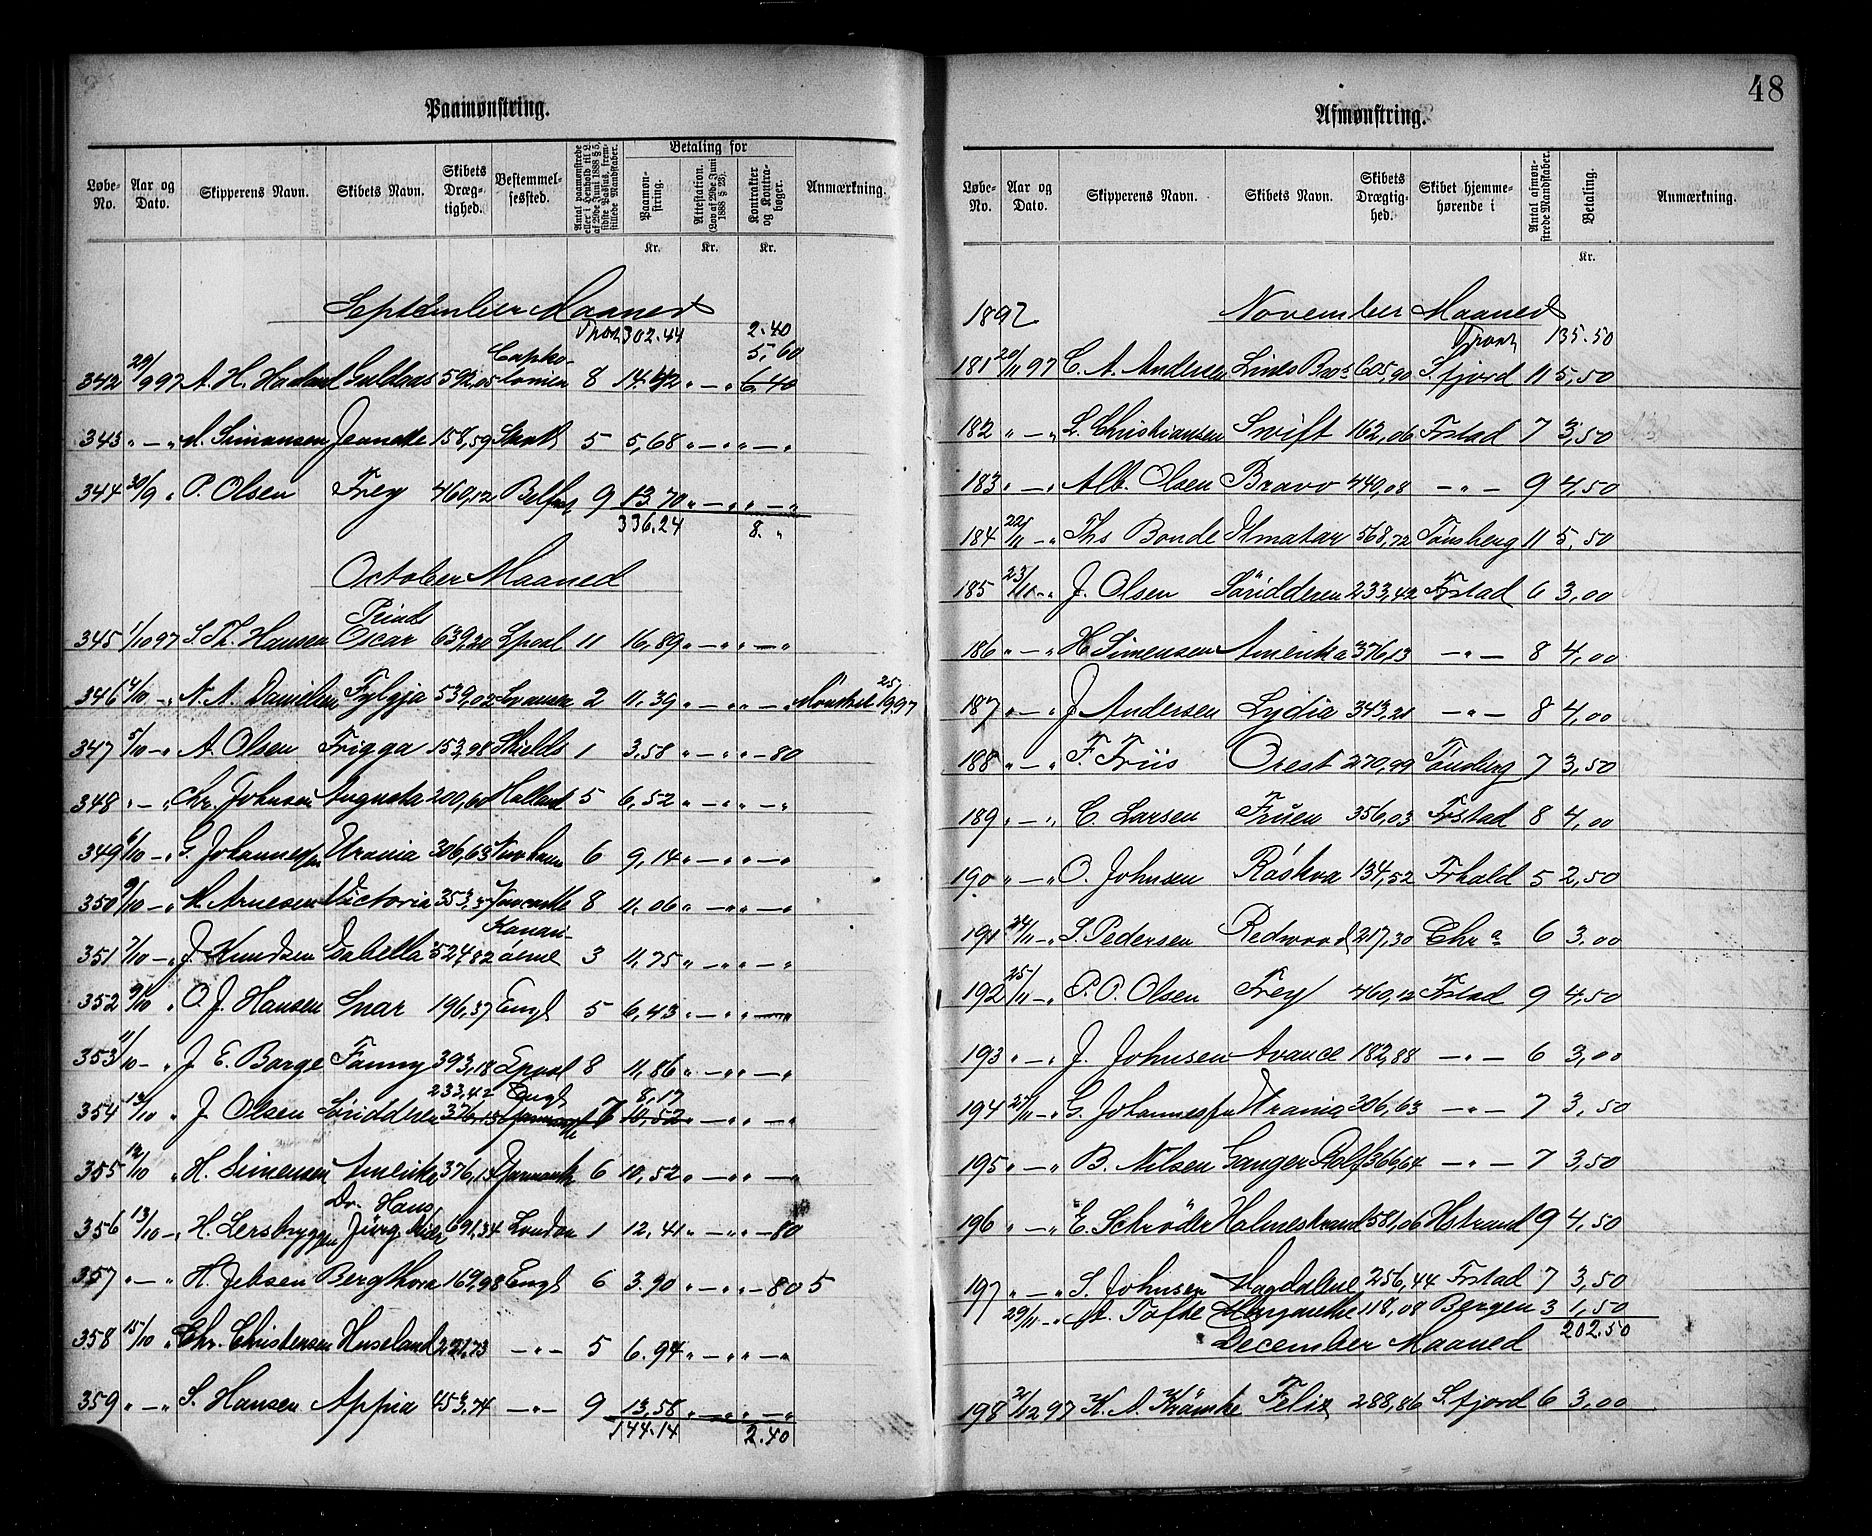 48
Paamønstring.
Løbe-No. Aar og Dato. Skipperens Navn. Skibets Navn. Skibets Dræg-tighed. Bestemmel-sessted. Antal paamønstrede eller i Henhold til L. af 29de Juni 1888 § 5, sidste Passus, frem-stillede Mandskaber. Betaling for Paamøn-string. Attestation. (Lov af 29de Juni 1888 § 23). Kontrakter og Kontra-bøger. Anmærkning.
Kr. Kr. Kr.
September Maaned
Trans 302.44 2.40
342 29/9 97 A. H. Haaland 592,05 Capko-lonien 8 14.42 " — " 5,60 6.40
343 " — " A. Simonsen Jeanette 158,59 5 5,68 " — " " — "
344 30/9 " P. Olsen Frey 460,12 Belfast 9 13.70 " — " " — "
336.24 8. "
October Maaned
345 1/10 97 S. Th. Hansen Prinds Oscar 639,20 Lpool 11 16,89 " — " " — "
346 4/10 — " N. A. Danielsen Fylgja 539,02 Swansea 2 11,39 " — " " — " 25/9 97
347 5/10 — " A. Olsen Frigga 153,98 Shields 1 3.58 " — " — 80
348 " — " Chr. Johnsen Augusta 200,60 Holland 5 6,52 " — " " — "
349 6/10 — " G. Johannessen Urania 306,63 6 9,14 " — " " — "
350 9/10 — " M. Arnesen Victoria 353,37 Newcastle 8 11,06 " — " " — "
351 7/10 — " J. Knudsen Isabella 524,82 Kanari-øerne 3 11,75 " — " " — "
352 9/10 " O. J. Hansen Snar 196,37 Engl 5 6,43 " — " " — "
353 11/10 — " J. E. Borge Fanny 393,18 Lpool 8 11,86 " — " " — "
354 12/10 " J. Olsen Sönidderen 233,42 376,13 Engl 7 8,17 10,52 " — " " — "
355 12/10 " H. Simensen Amerika 376,13 Jarmouth 6 10,52 " — " " — "
356 13/10 — " H. Lersbryggen Dr. Hans Jürg. 691,34 London 1 12,41 " — " — 80
357 " — " H. Jebsen Bergthora 169,98 Engl 6 3.90 " — " — 80 5
358 15/10 " Chr. Christensen Huseland 221,73 — " — 5 6.94 " — " " — "
359 " — " S. Hansen Appia 453,74 — " — 9 13,58 " — " " — "
144.14 2.40
Afmønstring.
Løbe-No. Aar og Dato. Skipperens Navn. Skibets Navn. Skibets Drægtig-hed. Skibet hjemme-hørende i Antal afmøn-strede Mandskaber. Betaling. Anmærkning.
Kr.
1897 November Maaned
Trans 135.50
181 20/11 97 C. A. Andersen Lines Bros 605,90 S.fjord 11 5,50
182 " — " L. Christiansen Swift 162,06 Frstad 7 3,50
183 " — " Alb. Olsen Bravo 440,08 — " — 9 4,50
184 22/11 — " Ths Bonde Ilmatar 568,72 Tønsberg 11 5,50
185 23/11 — " J. Olsen Sönidderen 233,42 Frstad 6 3,00
186 " — " H. Simensen Amerika 376,13 — " — 8 4,00
187 " — " J. Andersen Lydia 343,21 — " — 8 4,00
188 " — " F. Friis Orest 270,99 Tønsberg 7 3,50
189 " — " C. Larsen Fruen 356,03 Frstad 8 4,00
190 " — " O. Johnsen Röskva 134,52 Frhald 5 2,50
191 24/11 — " S. Pedersen Redwood 217,30 Chr a 6 3,00
192 25/11 — " P. P. Olsen Frey 460,12 Frstad 9 4,50
193 " — " J. Johnsen Avance 182,88 — " — 6 3,00
194 27/11 — " G. Johannessen Urania 306,63 — " — 7 3,50
195 " — " B. Nilsen Ganger Rolf 366,64 — " — 7 3,50
196 " — " E. Schröder Holmestrand 581,06 Hstrand 9 4,50
197 " — " S. Johnsen Magdalene 256,44 Frstad 7 3,50
29/11 — " M. Tofte Margarethe 118,08 Bergen 3 1,50
202.50
December Maaned
198 2/12 97 K. A. Felix 288,86 S.fjord 6 3,00